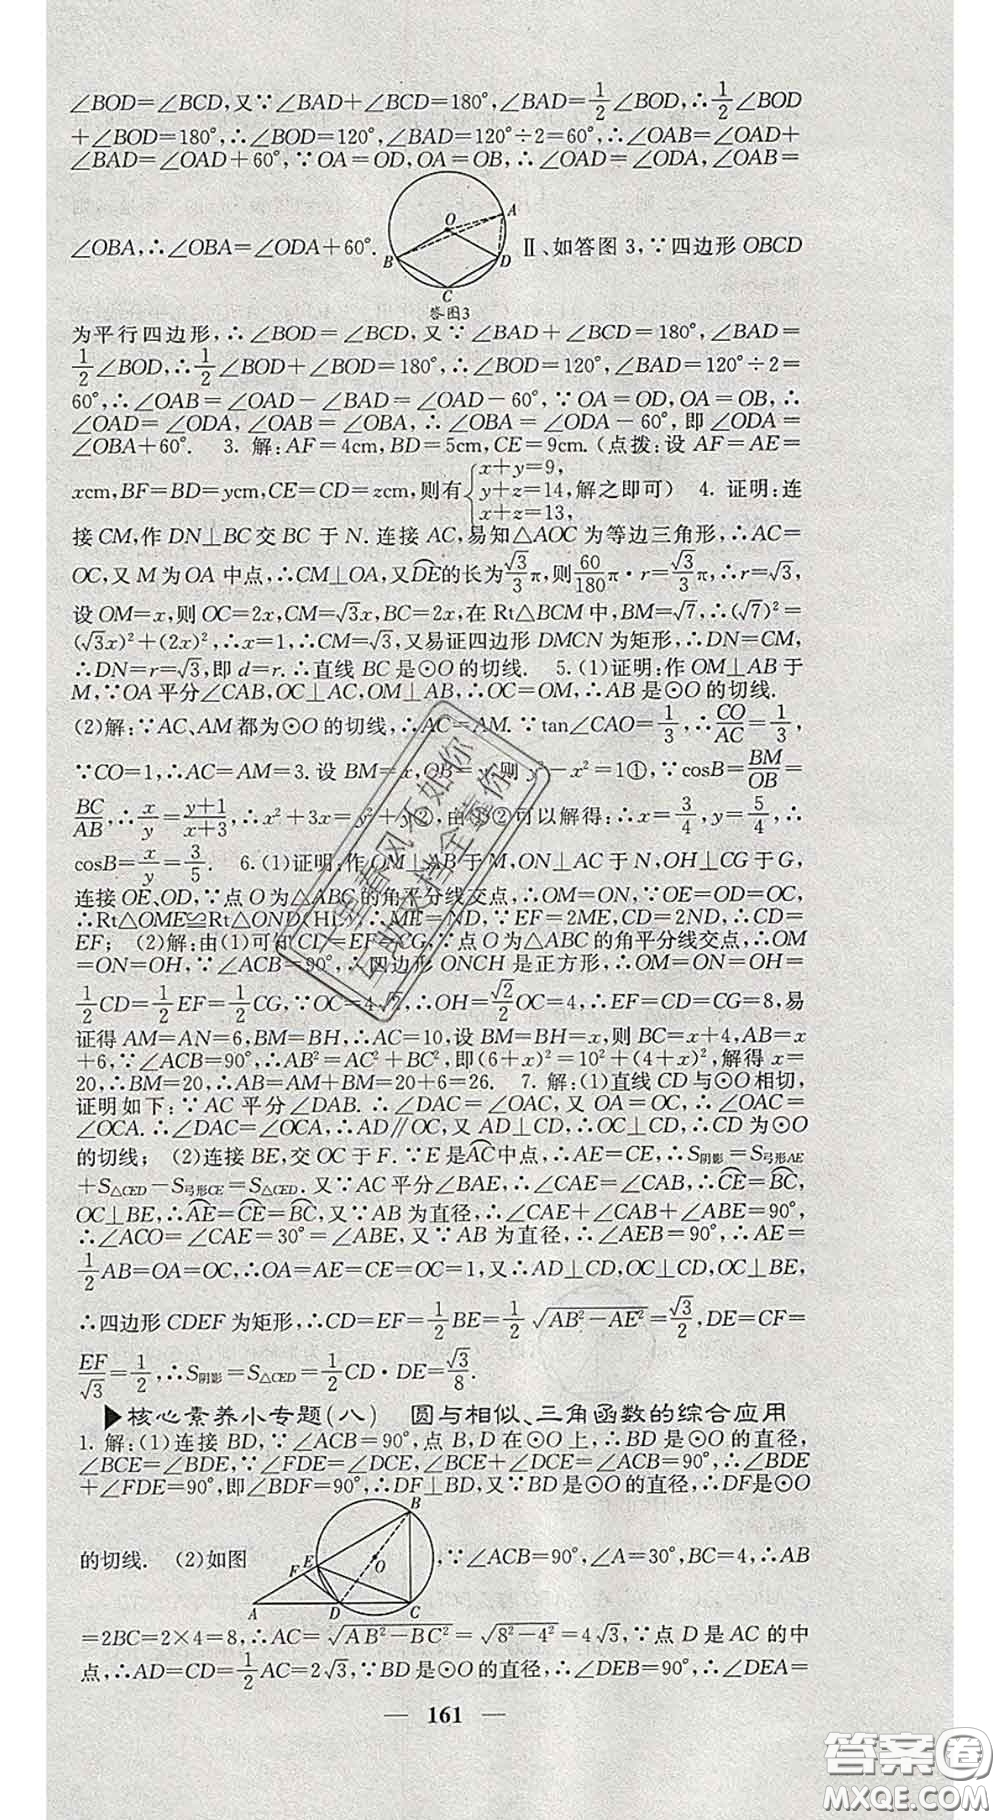 ∠BOD=∠BCD,又∵∠BAD+∠BCD=180°,∠BAD=1/2∠BOD,∴1/2∠BOD
+∠BOD=180°,∴∠BOD=120°,∠BAD=120°÷2=60°,∴∠OAB=∠OAD+
∠BAD=∠OAD+60°,∵OA=OD,OA=OB,∴∠OAD=∠ODA,∠OAB=
∠OBA,∴∠OBA=∠ODA+60°. Ⅱ、如答图3,∵四边形OBCD
O
A
B
D
C
答图3
为平行四边形,∴∠BOD=∠BCD,又∵∠BAD+∠BCD=180°,∠BAD=
1/2∠BOD,∴1/2∠BOD+∠BOD=180°,∴∠BOD=120°,∠BAD=120°÷2=
60°,∴∠OAB=∠OAD-∠BAD=∠OAD-60°,∵OA=OD,OA=OB,∴
∠OAD=∠ODA,∠OAB=∠OBA,∴∠OBA=∠ODA-60°,即∠ODA=
∠OBA+60°. 3. 解:AF=4cm,BD=5cm,CE=9cm.(点拨:设AF=AE=
xcm,BF=BD=ycm,CE=CD=zcm,则有{x+y=9, y+z=14, x+z=13,解之即可) 4. 证明:连
接CM,作DN⊥BC交BC于N.连接AC,易知△AOC为等边三角形,∴AC=
OC,又M为OA中点,∴CM⊥OA,又DE⌒的长为√3/3π,则60/180π·r=√3/3π,∴r=√3,
设OM=x,则OC=2x,CM=√3x,BC=2x,在Rt△BCM中,BM=√7,∴(√7)²=
(√3x)²+(2x)²,∴x=1,∴CM=√3,又易证四边形DMCN为矩形,∴DN=CM,
∴DN=r=√3,即d=r.∴直线BC是⊙O的切线. 5.(1)证明:作OM⊥AB于
M,∵OA平分∠CAB,OC⊥AC,OM⊥AB,∴OC=OM,∴AB是⊙O的切线.
(2)解:∵AC、AM都为⊙O的切线,∴AC=AM.∵tan∠CAO=1/3,∴CO/AC=1/3,
∵CO=1,∴AC=AM=3.设BM=x,OB=y,则y²-x²=1①,∵cosB=BM/OB=
BC/AB,∴x/y=(y+1)/(x+3),∴x²+3x=y²+y②,由①②可以解得:∴x=3/4,y=5/4,∴
cosB=x/y=3/5. 6.(1)证明:作OM⊥AB于M,ON⊥AC于N,OH⊥CG于G,
连接OE、OD,∵点O为△ABC的角平分线交点,∴OM=ON,∵OE=OD=OC,
∴Rt△OME≌Rt△OND(HL),∴ME=ND,∵EF=2ME,CD=2ND,∴CD=
EF; (2)解:由(1)可知CD=EF=CG,∵点O为△ABC的角平分线交点,∴OM
=ON=OH,∵∠ACB=90°,∴四边形ONCH是正方形,∴OM=ON=OH=
1/2CD=1/2EF=1/2CG,∵OC=4√2,∴OH=√2/2OC=4,∴EF=CD=CG=8,易
证得AM=AN=6,BM=BH,∴AC=10,设BM=BH=x,则BC=x+4,AB=x
+6,∵∠ACB=90°,∴AB²=AC²+BC²,即(6+x)²=10²+(4+x)²,解得x=
20,∴BM=20,∴AB=AM+BM=20+6=26. 7. 解:(1)直线CD与⊙O相切,
证明如下:∵AC平分∠DAB.∴∠DAC=∠OAC,又OA=OC,∴∠OAC=
∠OCA.∴∠DAC=∠OCA,∴AD∥OC,又AD⊥CD,∴OC⊥CD,∴CD为⊙O
的切线; (2)连接BE,交OC于F.∵E是AC⌒中点,∴AE=CE,∴S阴影=S弓形AE
+S△CED-S弓形CE=S△CED.又∵AC平分∠BAE,∴∠CAE=∠CAB,∴CE⌒=BC⌒,
OC⊥BE,∴AE⌒=CE⌒=BC⌒,又∵AB为直径,∴∠CAE+∠CAB+∠ABE=90°,
∴∠ACO=∠CAE=30°=∠ABE,又∵AB为直径,∴∠AEB=90°,∴AE=
1/2AB=OA=OC,∴OA=AE=CE=OC=1,又∴AD⊥CD,OC⊥CD,OC⊥BE,
∴四边形CDEF为矩形,∴CD=EF=1/2BE=1/2√(AB²-AE²)=√3/2,DE=CF=
EF/√3=1/2,∴S阴影=S△CED=1/2CD·DE=√3/8.
▶核心素养小专题(八) 圆与相似、三角函数的综合应用
1. 解:(1)连接BD,∵∠ACB=90°,点B,D在⊙O上,∴BD是⊙O的直径,
∠BCE=∠BDE,∵∠FDE=∠DCE,∠BCE+∠DCE=∠ACB=90°,∴∠BDE
+∠FDE=90°,即∠BDF=90°,∴DF⊥BD,又∵BD是⊙O的直径,∴DF是⊙O
的切线. (2)如图 ,∵∠ACB=90°,∠A=30°,BC=4,∴AB
B
E
F
O
A
D
C
=2BC=2×4=8,∴AC=√(AB²-BC²)=√(8²-4²)=4√3,∵点D是AC的中
点,∴AD=CD=1/2AC=2√3,∵BD是⊙O的直径,∴∠DEB=90°,∴∠DEA=
— 161 —
十里春风不如你
互助文档全靠你
答案圈
MXQE.COM